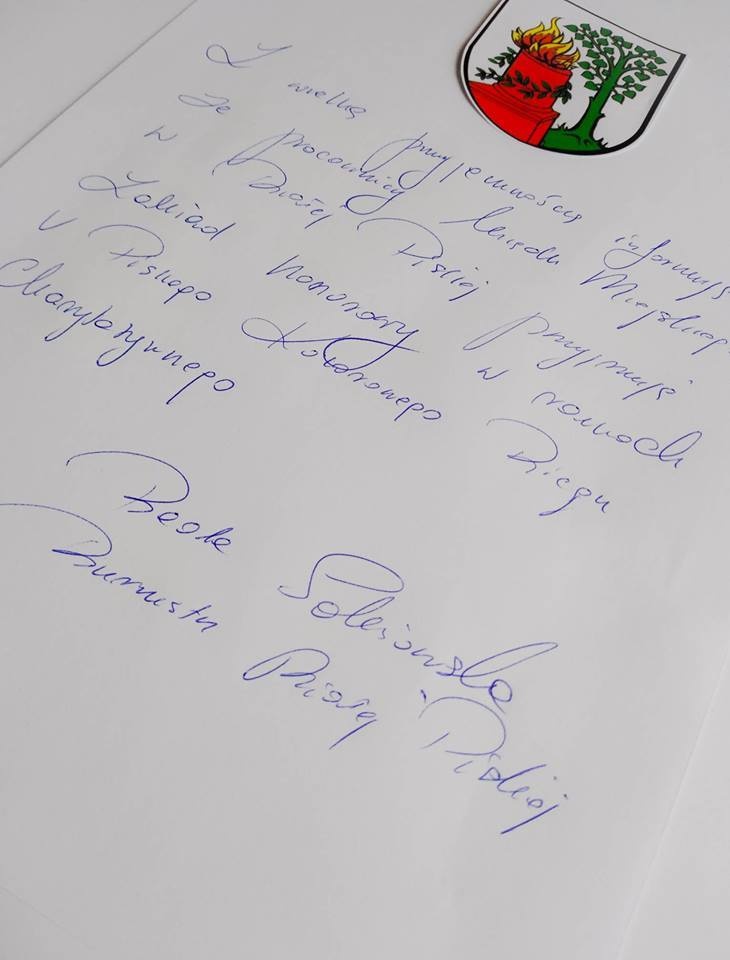 Z wielką przyjemnością informuję
że pracownicy Urzędu Miejskiego
w Białej Piskiej przyjmują
Zakład Honorowy w ramach
V Piskiego Kolorowego Biegu
Charytatywnego
Beata Sokołowska
Burmistrz Białej Piskiej